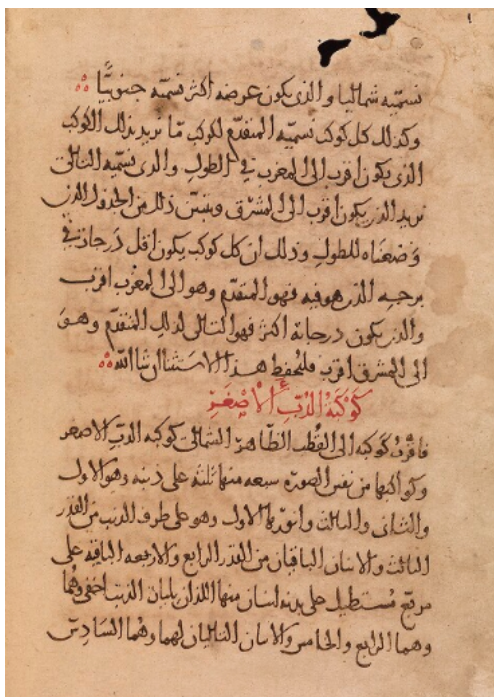 نسميه شماليا والذى يكون عرضه اكثر نسميه جنوبيًّا
وكذلك كل كوكب نسميه المتقدم لكوكب مّا نريد بذلك الكوكب
الذى يكون اقرب الى المغرب فى الطول والذى نسميه التالى
نريد الذى يكون اقرب الى المشرق ويتبين ذلك من الجدول الذى
وَضعنَاه للطول وذلك ان كل كوكب يكون اقل دَرجات فى
برجه الذى هو فيه فهو المتقدم وهو الى المغرب اقرب
والذى يكون درجاته اكثر فهو التالى لذلك المتقدم وهوَ
الى المشرق اقرب فليُحفظ هذا ان شا الله
كَوْكَبَةُ الدُبّ الْأَصْغَرِ
فاقربُ كوكبه الى القُطب الظّاهر الشمالى كوكبه الدبّ الاصغر
وكواكبها من نفس الصورَه سبعه منها ثلثه على ذنبه وهو الاول
والثانى والثالث وانورها الاول وهو على طرف الذنب من القدر
الثالث والاثنان الباقيان من القدر الرابع والاربعه الباقيه على
مربّع مُستطيل على بدنه اثنان منها اللذان يليان الذنب اخفى وهُما
وهما الرابع والخامس والاثنان التاليان لهما وهُما السَادسْ